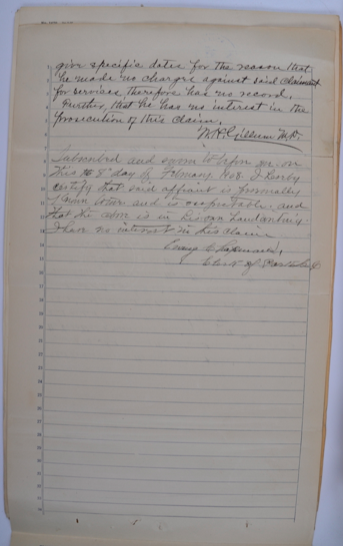 give specific dates for the reason that
he made no charges against said Claimant
for services, therefore has no record.
Further, that he has no interest in the
prosecution of this Claim.
W.H. Gillium M.D.
Subscribed and sworn to before me on
this 8" day of February 1908. I hereby
certify that said affiant is personally
known to me and is respectable, and
that the above is in his own handwriting
I have no interest in this claim
Clerk of